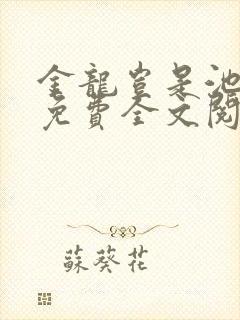 金龍豈是池
免費全文閱
蘇葵花